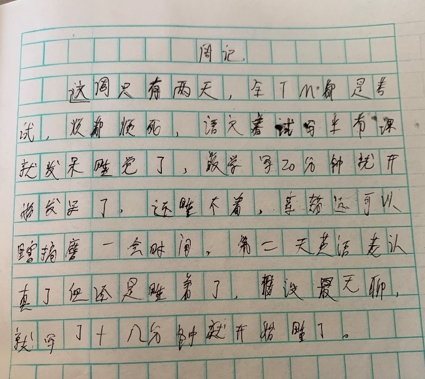 周记.
这周只有两天，全TM都是考
试，烦都烦死，语文着试写半节课
就发呆睡觉了，数学写20分钟就开
始发呆了，还睡不着，草稿还可以
瞎搞磨一会时间，第二天英语老认
真了但还是睡着了，最无聊，
就写了十几分钟就开始睡了。